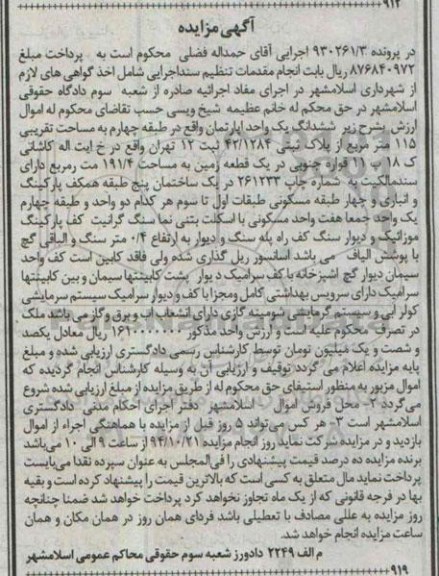 ۹۱۲
آگهی مزایده
در پرونده ۹۳۰۲۶۱/۳ اجرایی آقای حمداله فضلی محکوم است به پرداخت مبلغ
۸۷۶۸۴۰۹۷۲ ریال بابت انجام مقدمات تنظیم سنداجرایی شامل اخذ گواهی های لازم
از شهرداری اسلامشهر در اجرای مفاد اجرائیه صادره از شعبه سوم دادگاه حقوقی
اسلامشهر در حق محکم له خانم عظیمه شیخ ویسی حسب تقاضای محکوم له اموال
ارزش بشرح زیر ششدانگ یک واحد آپارتمان واقع در طبقه چهارم به مساحت تقریبی
۱۱۵ متر مربع از پلاک ثبتی ۴۲/۱۲۸۴ ثبت ۱۲ تهران واقع در خ ایت اله کاشانی
ک ۱۸ پ ۱۱ قواره جنوبی در یک قطعه زمین به مساحت ۱۹۱/۴ مت رمربع دارای
سندمالکیت به شماره چاپ ۲۶۱۲۳۳ در یک ساختمان پنج طبقه همکف پارکینگ
و انباری و چهار طبقه مسکونی طبقات اول تا سوم هر کدام دو واحد و طبقه چهارم
یک واحد جمعا هفت واحد مسکونی با اسکلت بتنی نما سنگ گرانیت کف پارکینگ
موزائیک و دیوار سنگ کف راه پله سنگ و دیوار به ارتفاع ۰/۴ متر سنگ و الباقی گچ
با پوشش الیاف می باشد آسانسور ریل گذاری شده ولی فاقد کابین است کف واحد
سیمان دیوار گچ اشپزخانه با کف سرامیک دیوار پشت کابینتها سیمان و بین کابینتها
سرامیک دارای سرویس بهداشتی کامل ومجزا با کف و دیوار سرامیک سیستم سرمایشی
کولر آبی و سیستم گرمایشی شومینه گازی دارای انشعاب اب و برق و گاز می باشد ملک
در تصرف محکوم علیه است و ارزش واحد مذکور ریال معادل یکصد
و شصت و یک میلیون تومان توسط کارشناس رسمی دادگستری ارزیابی شده و مبلغ
پایه مزایده اعلام می گردد توقیف و ارزیابی آن به وسیله کارشناس انجام گردیده که
اموال مزبور به منظور استیفای حق محکوم له از طریق مزایده از مبلغ ارزیابی شده شروع
می‌گردد ۲- محل فروش اموال اسلامشهر دفتر اجرای احکام مدنی دادگستری
اسلامشهر است ۳- هر کس می‌تواند ۵ روز قبل از مزایده با هماهنگی اجراء از اموال
بازدید و در مزایده شرکت نماید روز انجام مزایده ۹۴/۱۰/۲۱ از ساعت ۹ الی ۱۰ می‌باشد
برنده مزایده ده درصد قیمت پیشنهادی را فی‌المجلس به عنوان سپرده نقدا می‌بایست
پرداخت نماید مال متعلق به کسی است که بالاترین قیمت را پیشنهاد کرده است و بقیه
بها در فرجه قانونی که از یک ماه تجاوز نخواهد کرد پرداخت خواهد شد ضمنا چنانچه
روز مزایده به عللی مصادف با تعطیلی باشد فردای همان روز در همان مکان و همان
ساعت مزایده انجام خواهد شد.
م الف ۲۲۴۹ دادورز شعبه سوم حقوقی محاکم عمومی اسلامشهر
۹۱۹